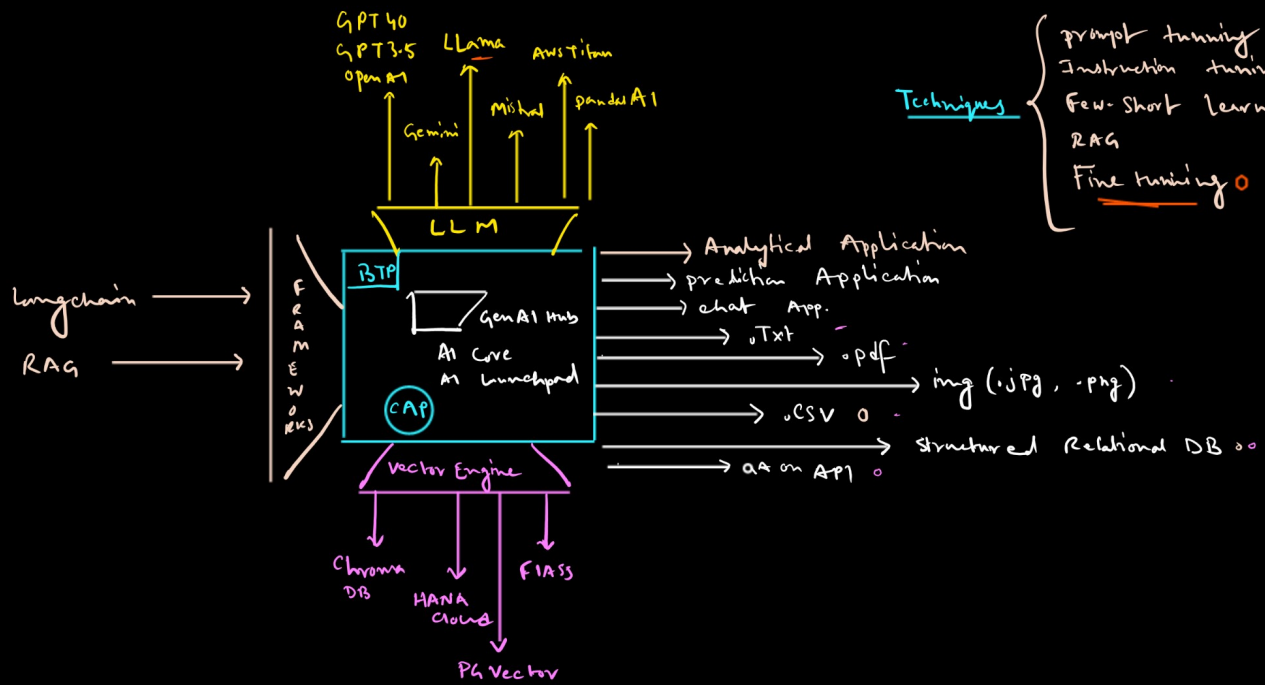 GPT4o
GPT3.5
OpenAI
LLama
AWS Titan
Gemini
Mistral
pandas AI
LLM
Techniques
prompt tunning
Instruction tunin
Few-Short Learn
RAG
Fine tunning
Langchain
RAG
FRAMEWORKS
BTP
GenAI Hub
AI Core
AI Launchpad
CAP
Analytical Application
prediction Application
chat App.
.Txt
.pdf
img (.jpg, .png)
.CSV
Structured Relational DB
QA on API
Vector Engine
Chroma
DB
HANA
Cloud
PG Vector
FIASS